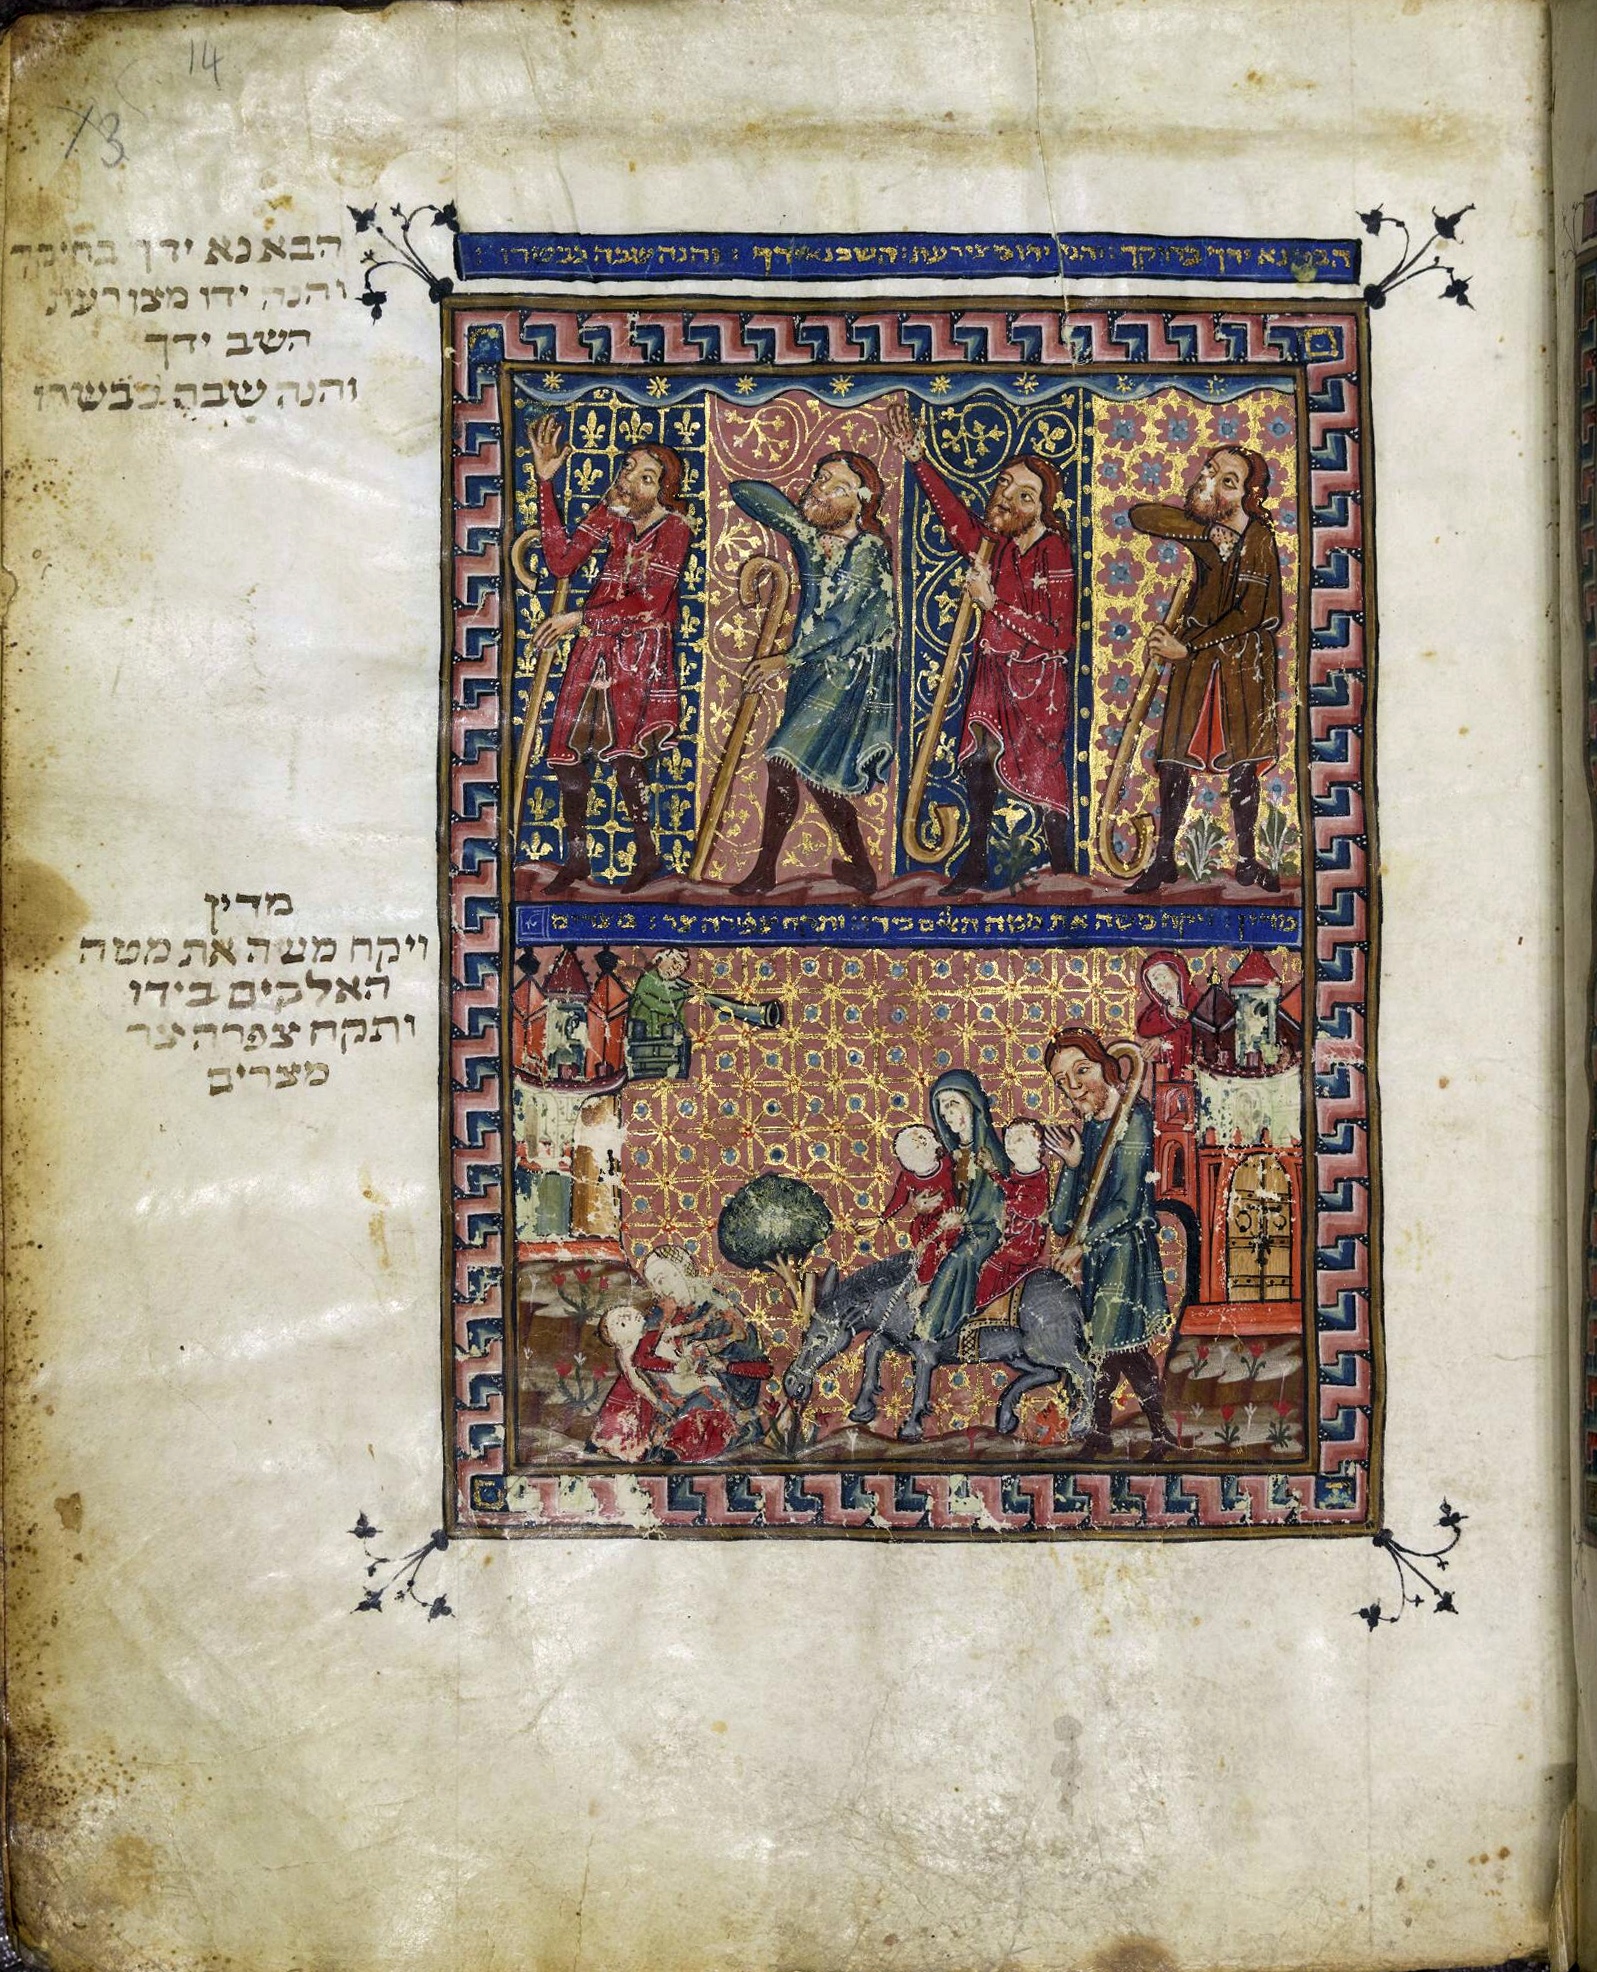 14
3
הבא נא ידך בחיקך
והנה ידו מצורעת
השב ידך
והנה שבה כבשרו
הבא נא ידך בחיקך והנה ידו מצורעת השב נא ידך והנה שבה כבשרו
מדין
ויקח משה את מטה
האלקים בידו
ותקח צפרה צר
מצרים
מדין ויקח משה את מטה האלים בידו ותקח צפרה צר מצרים